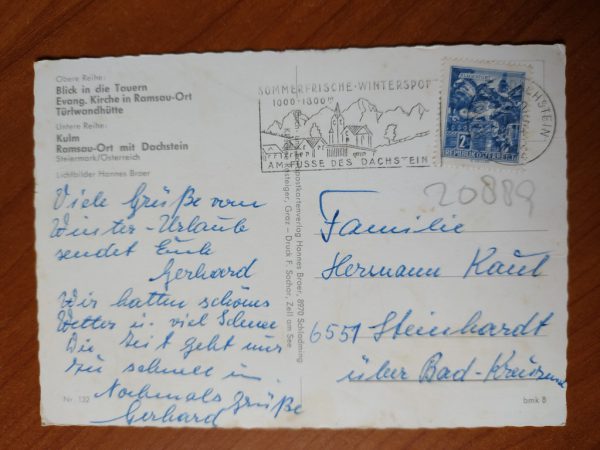 Obere Reihe:
Blick in die Tauern
Evang. Kirche in Ramsau-Ort
Türlwandhütte
Untere Reihe:
Kulm
Ramsau-Ort mit Dachstein
Steiermark/Österreich
Lichtbilder Hannes Broer
Viele Grüße vom
Winter-Urlaube
sendet Euch
Gerhard
Wir hatten schönes
Wetter u. viel Schnee
Die Zeit geht nur
zu schnell
Nochmals Grüße
Gerhard
Nr. 132
Postkartenverlag Hannes Broer, 8970 Schladming
Graz – Druck F. Sochor, Zell am See
SOMMERFRISCHE-WINTERSPORT
1000-1800m
AM FUSSE DES DACHSTEIN
DACHSTEIN
2
REPUBLIK ÖSTERREICH
20889
Familie
Hermann Kaul
6551 Steinhardt
über Bad-Kreuznach
bmk B